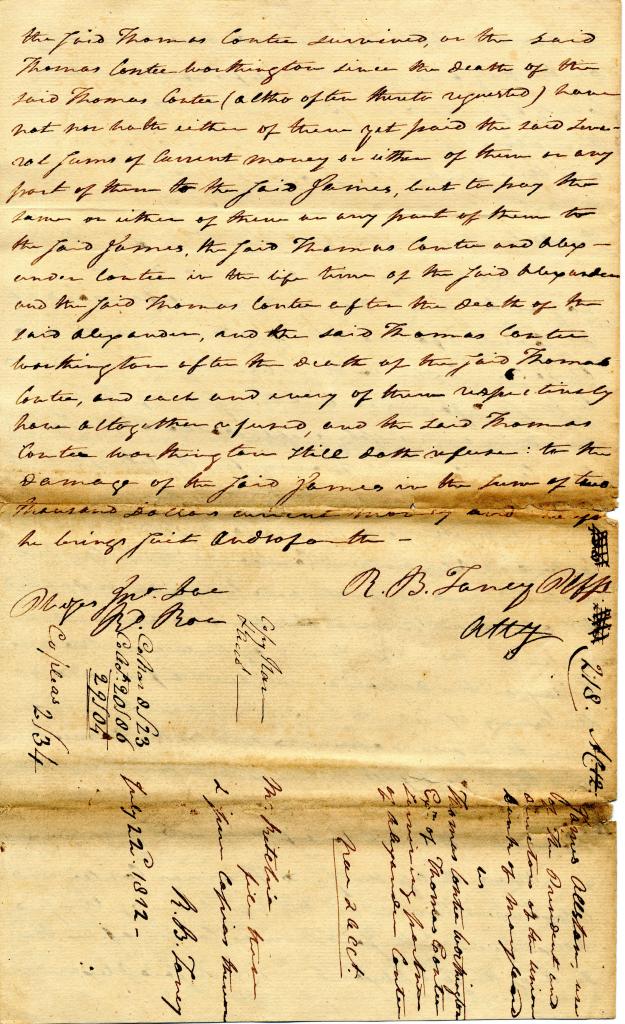 the said Thomas Contee survived, or the said
Thomas Contee Worthington since the death of the
said Thomas Contee (altho often thereto requested) have
not nor hath either of them yet paid the said seve-
ral sums of current money or either of them or any
part of them to the said James, but to pay the
same or either of them or any part of them to
the said James, the said Thomas Contee and Alex-
ander Contee in the life time of the said Alexander
and the said Thomas Contee after the death of the
said Alexander, and the said Thomas Contee
Worthington after the death of the said Thomas
Contee, and each and every of them respectively
have altogether refused, and the said Thomas
Contee Worthington still doth refuse: to the
damage of the said James in the sum of two
thousand Dollars current money and
he brings suit and so forth -
R. B. Taney
Atty
Pledges Jno. Doe
Rd. Roe
Copy Narr
Copias 2/34
8/23
20/86
29/09
218.
James Allstan, use
of the President and
Directors of the Union
Bank of Maryland
vs
Thomas Contee Worthington
Exr. of Thomas Contee
surviving partner
of Alexander Contee
Narr & acct.
Mr. Ritchie
file this
& issue Copias thereon
R. B. Taney
July 22d. 1812 -